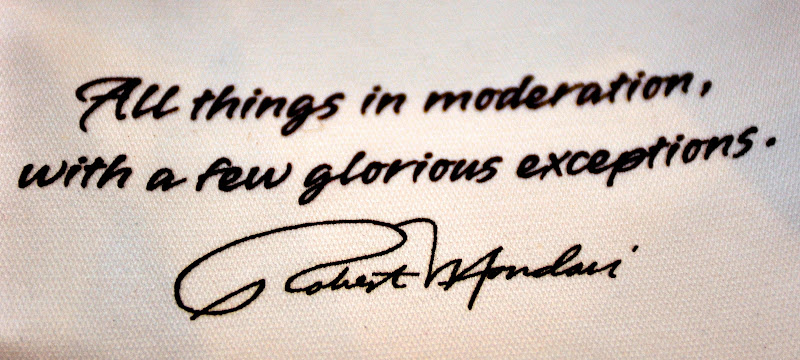 All things in moderation,
with a few glorious exceptions.
Robert Mondavi